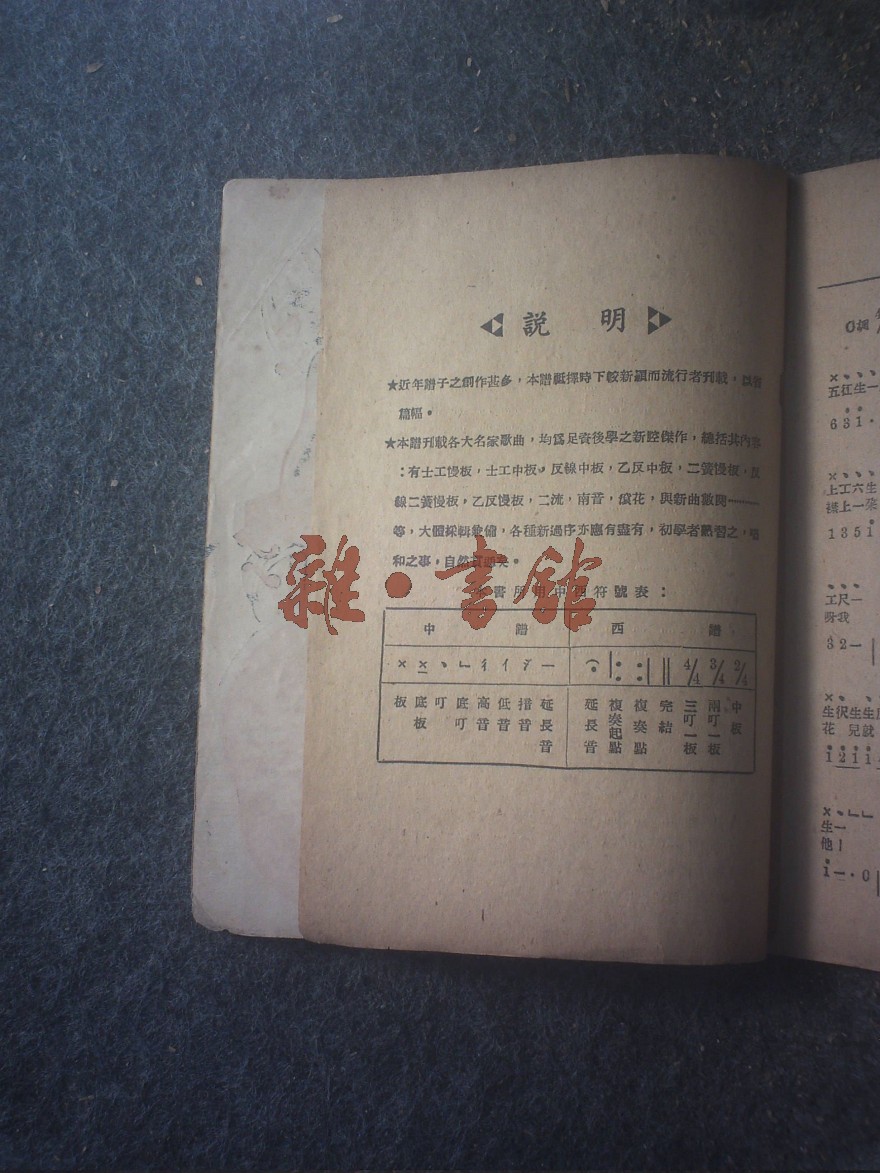 說 明
★近年譜子之創作甚多，本譜祗擇時下較新穎而流行者刊載，以省
篇幅。
★本譜刊載各大名家歌曲，均為足資後學之新腔傑作，總括其內容
：有士工慢板，士工中板，反線中板，乙反中板，二簧慢板，反
線二簧慢板，乙反慢板，二流，南音，滾花，與新曲數闋………
等，大體採輯兼備，各種新過序亦應有盡有，初學者熟習之，唱
和之事，自然
雜·書館
本書所用中西符號表：
中 譜 西 譜
× × 、 ㄴ 彳 亻 一 𝄐 |: :| || 4/4 3/4 2/4
板 底板 叮 底叮 高音 低音 措音 延長音 延長音 複奏起點 複奏點 完結 三叮一板 兩叮一板 中板
調
五江生一
6 3 1 ·
上工六生
襟上一朵
1 3 5 i
工尺一
呀我
3 2 一
生伬生生
花 兒就
i 2 i i
生一
他
i 一 · 0